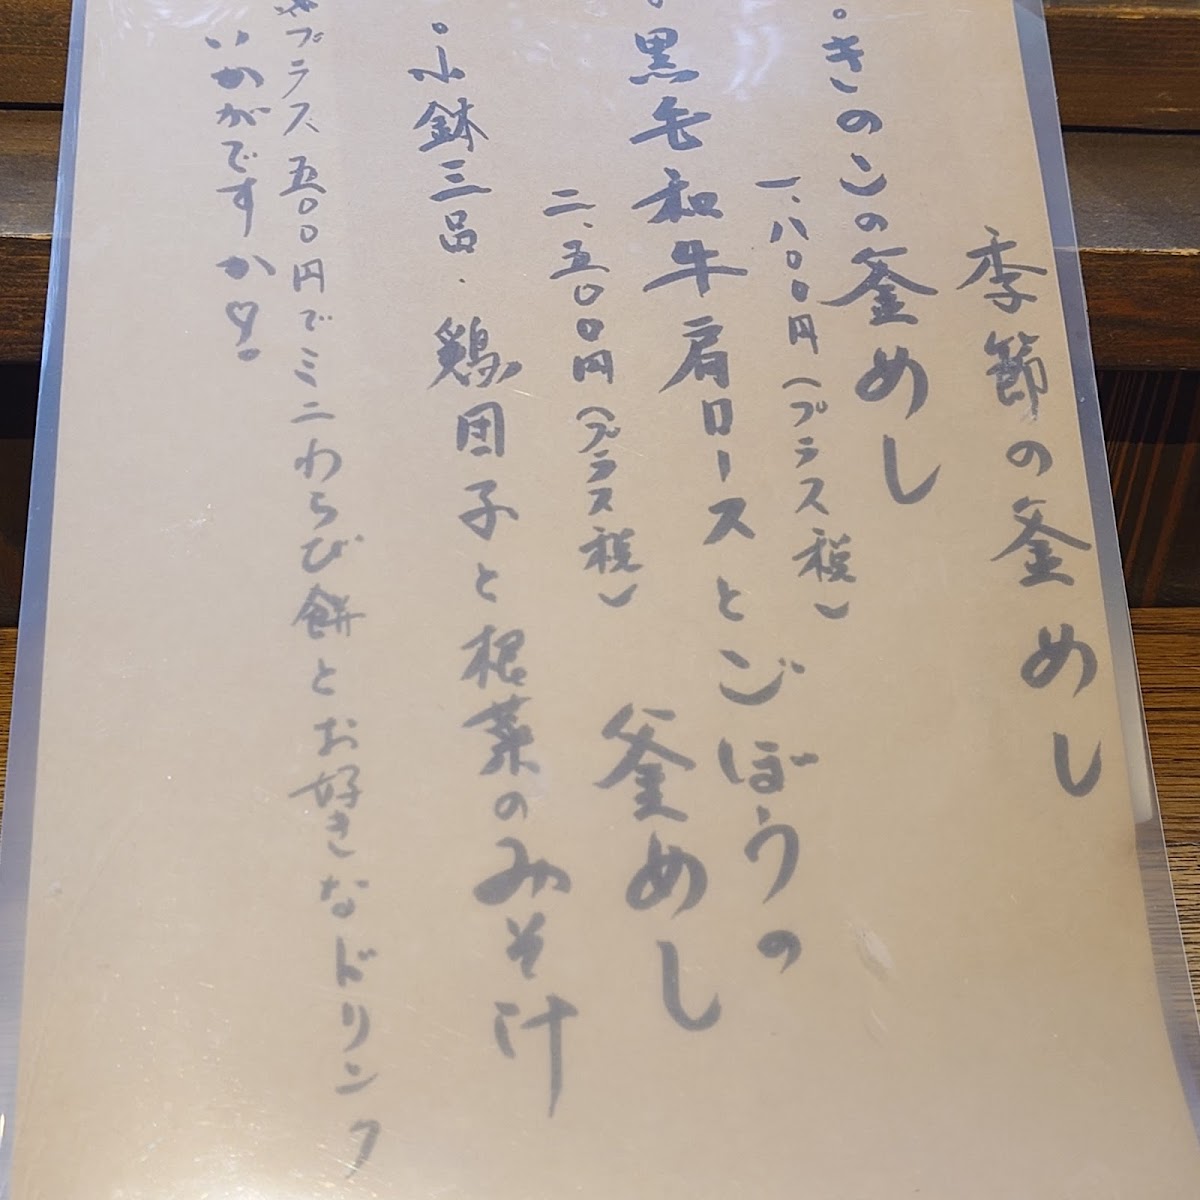 季節の釜めし
・きのこの釜めし
一、八〇〇円(プラス税)
・黒毛和牛肩ロースとごぼうの
釜めし
二、五〇〇円(プラス税)
・小鉢三品・鶏団子と根菜のみそ汁
プラス五〇〇円でミニわらび餅とお好きなドリンク
いかがですか♡。